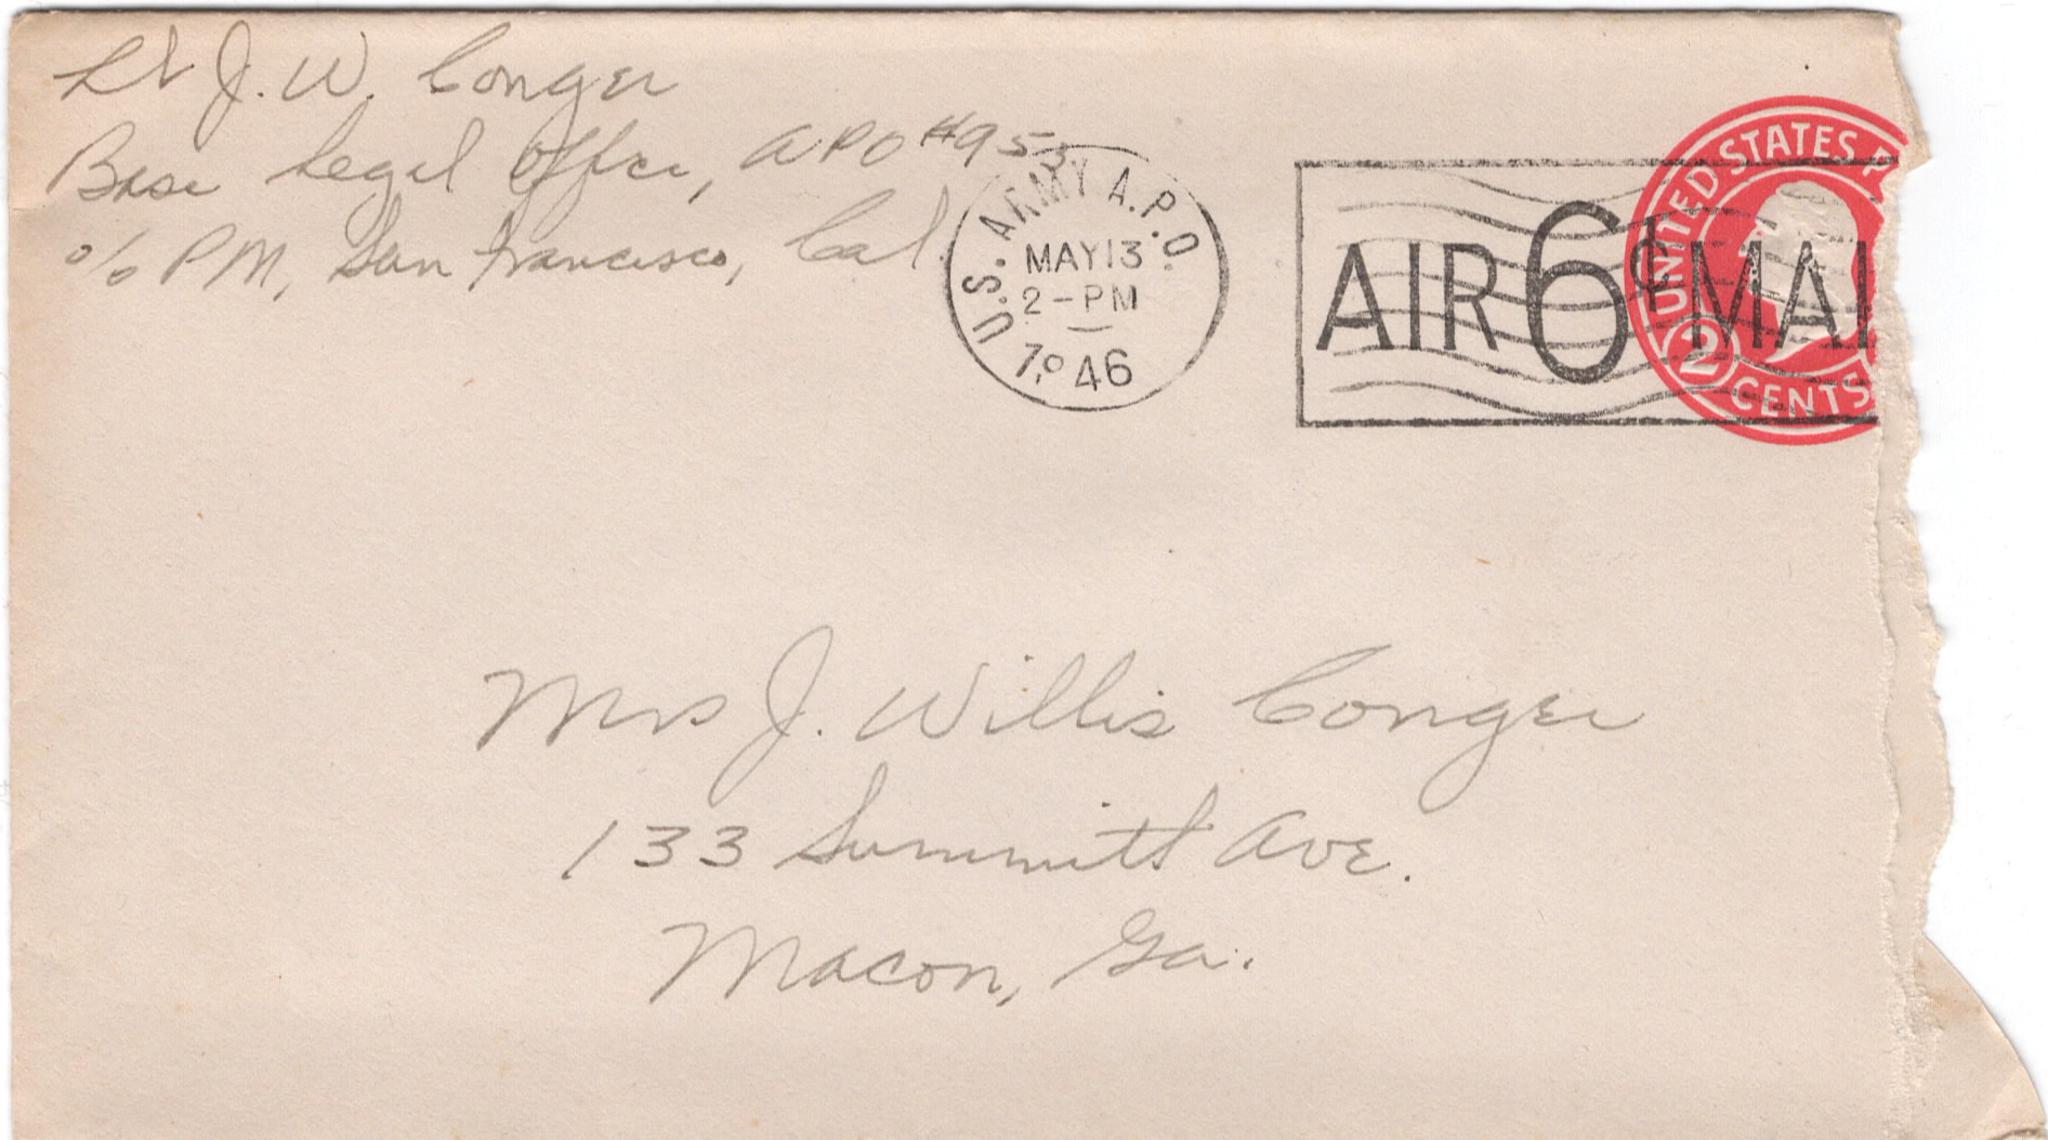 Lt J. W. Conger
Base Legal Office, APO #953
c/o PM, San Francisco, Cal.
U.S. ARMY A.P.O.
MAY 13
2-PM
1946
AIR 6¢ MAI
UNITED STATES P
2 CENTS
Mrs J. Willis Conger
133 Summitt Ave.
Macon, Ga.